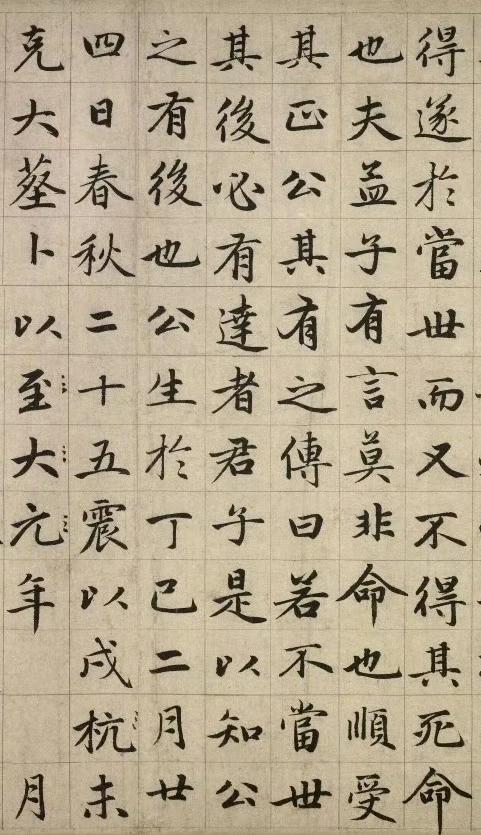 得遂於當世而又不得其死命
也夫孟子有言莫非命也順受
其正公其有之傳曰若不當世
其後必有達者君子是以知公
之有後也公生於丁巳二月廿
四日春秋二十五震以戍杭未
克大塟卜以至大元年　月